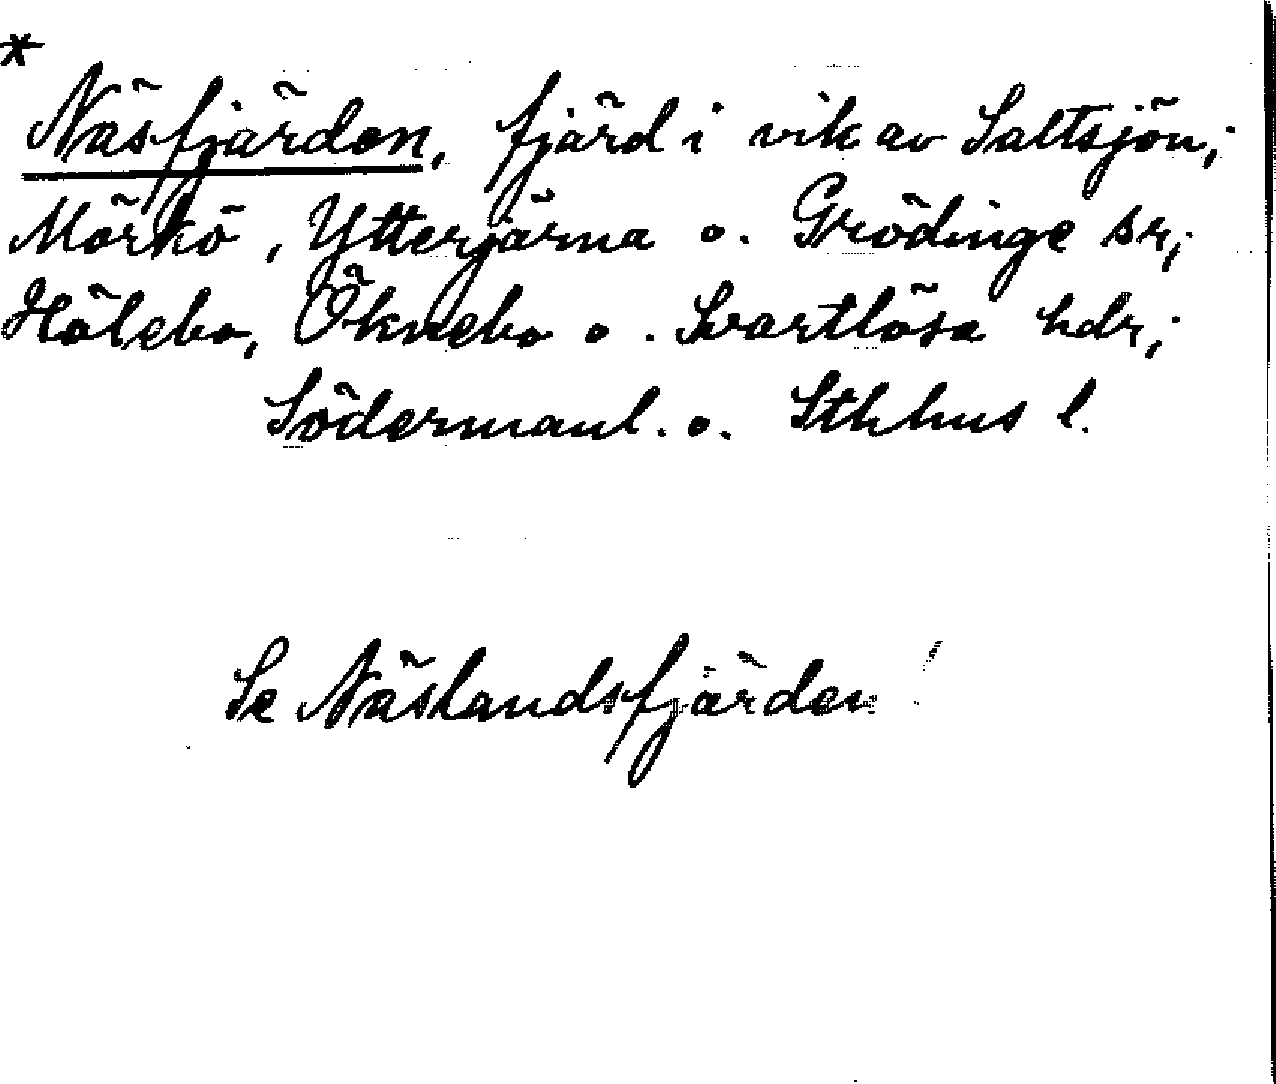 *
Näsfjärden, fjärd i vik av Saltsjön;
Mörkö, Ytterjärna o. Grödinge sn;
Hölebo, Öknebo o. Svartlösa hdr;
Södermanl. o. Sthlms l.
Se Näslandsfjärden!